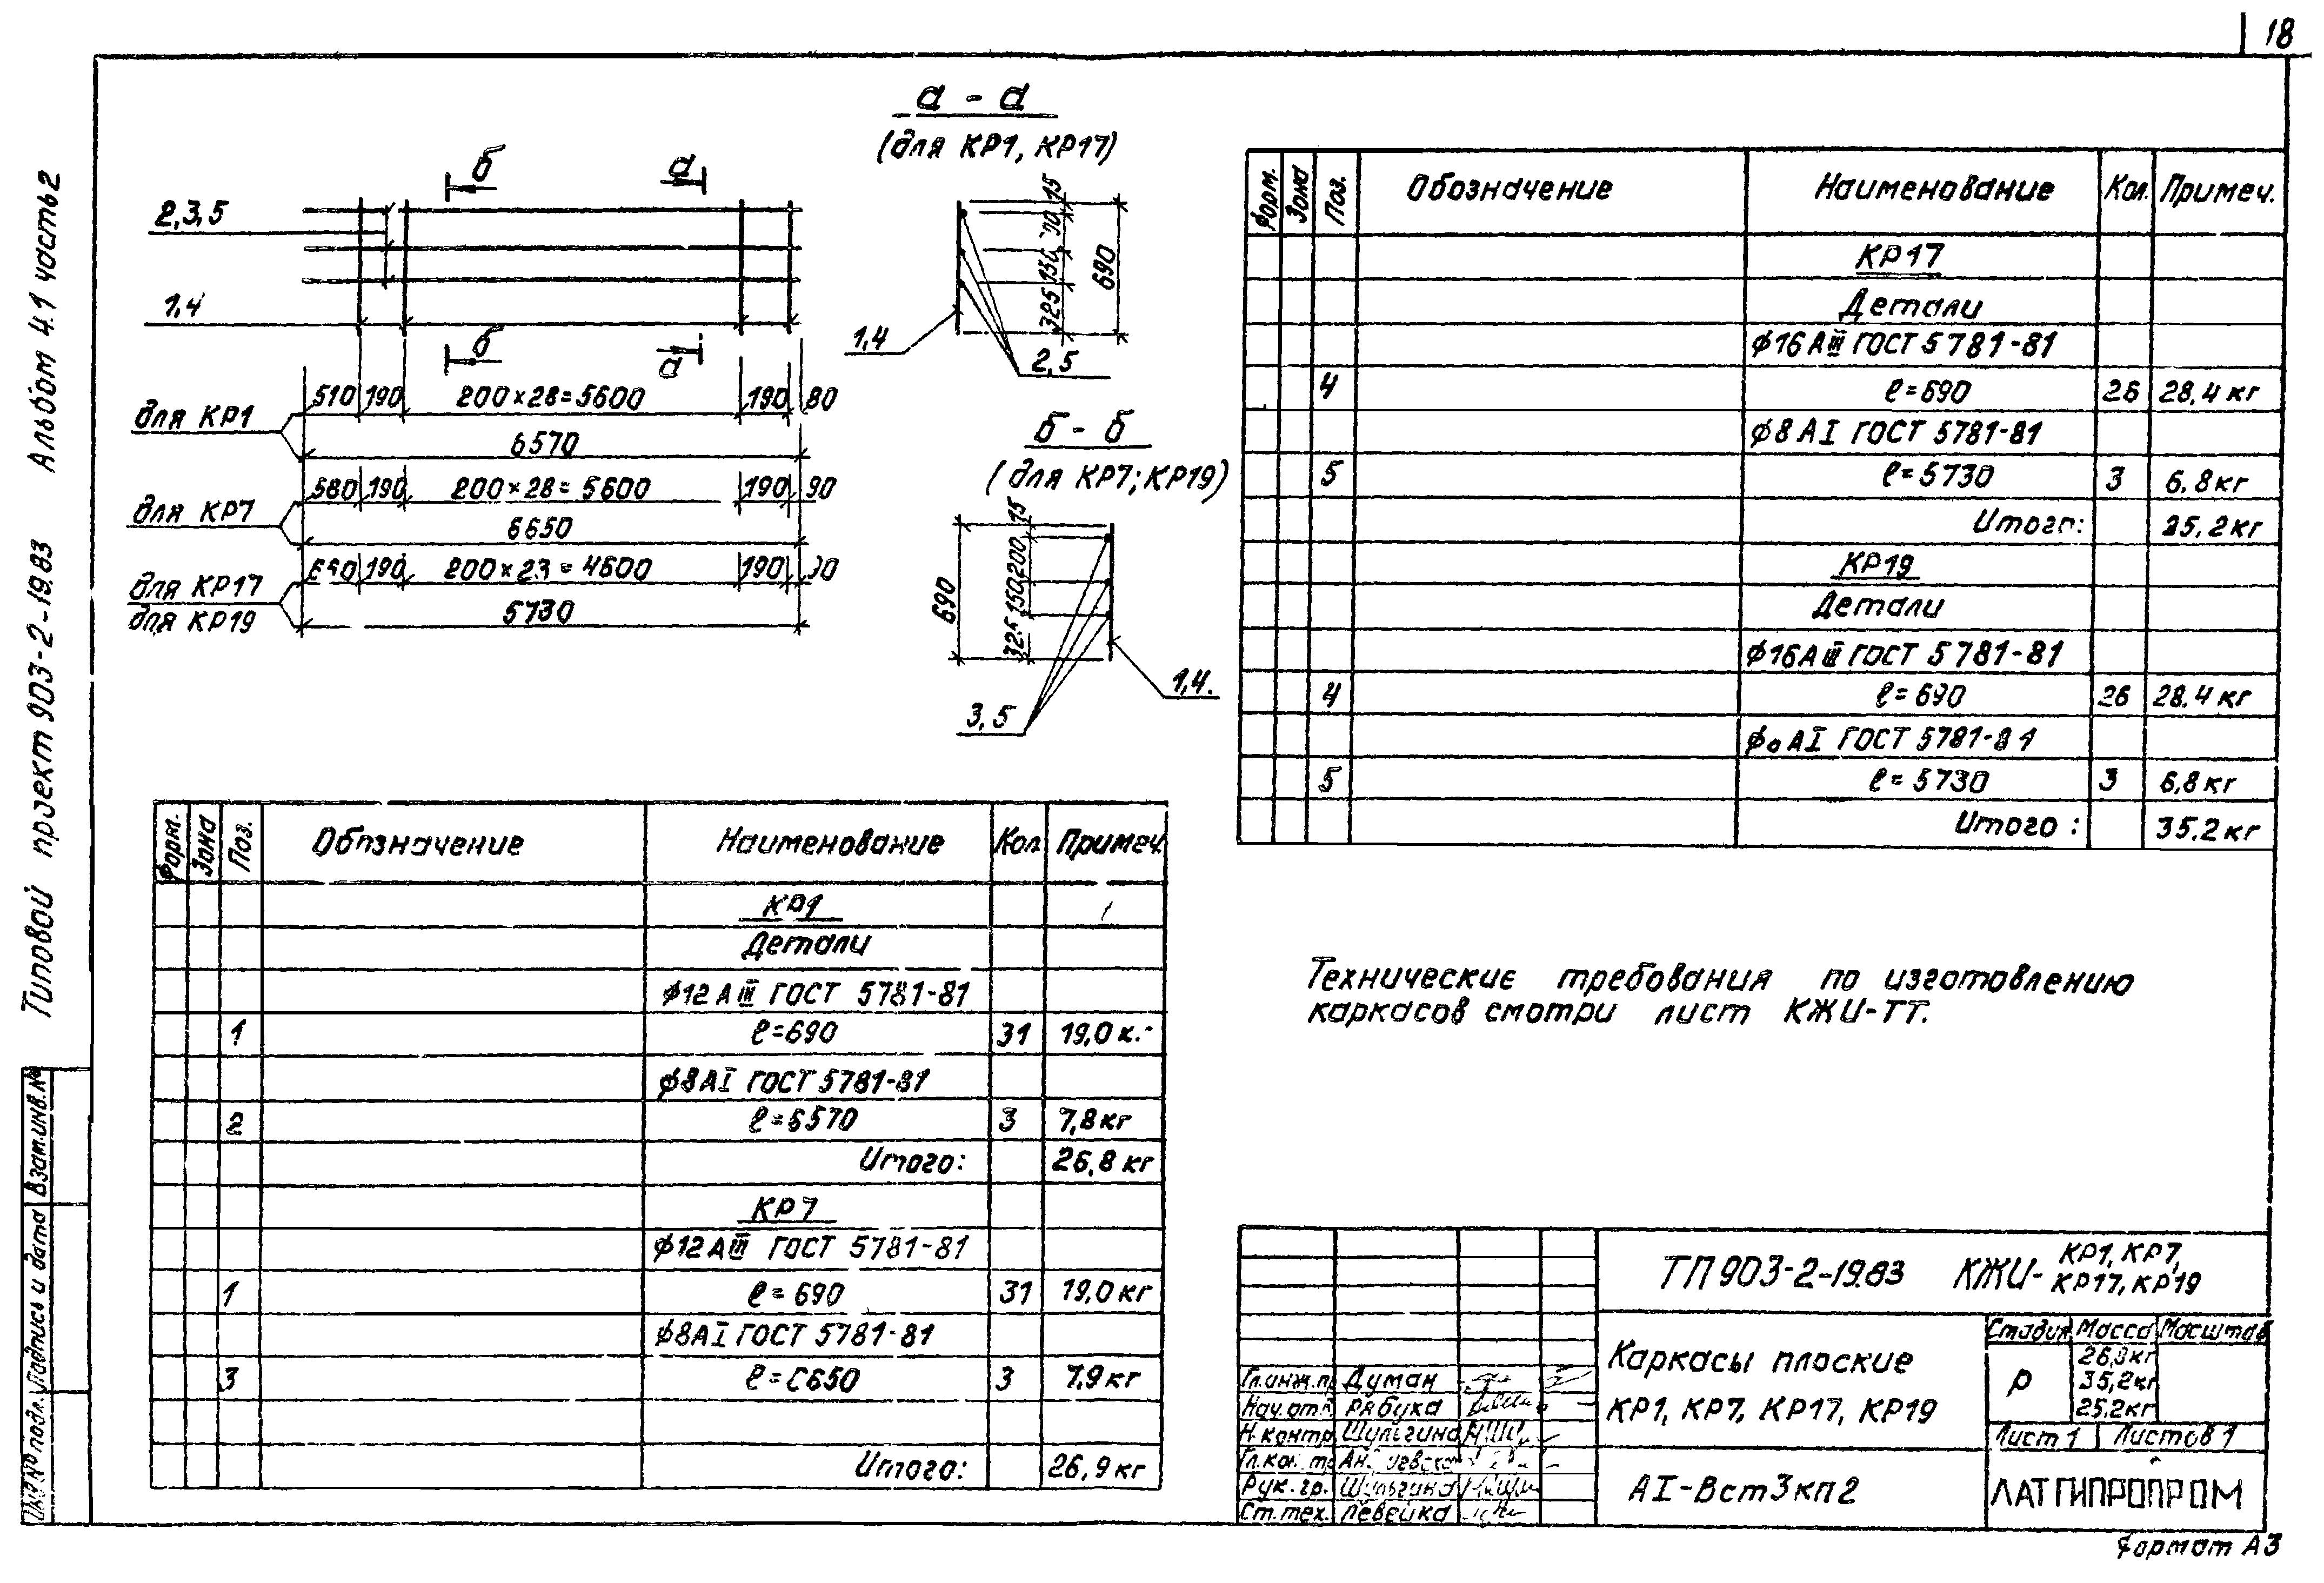 18
Типовой проект 903-2-19.83 Альбом 4.1 часть 2
Взам.инв.№
Подпись и дата
Инв.№ подл.
б а
2,3,5
1,4
б а
510 190 200×28=5600 190 80
для КР1
6570
580 190 200×28=5600 190 90
для КР7
6650
190 200×23=4600 190
для КР17
для КР19
5730
а - а
(для КР1, КР17)
15
150
325
690
1,4
2,5
б - б
(для КР7; КР19)
15
200
150
325
690
3,5
1,4.
Форм. Зона Поз. Обозначение Наименование Кол. Примеч.
КР17
Детали
ϕ16АⅢ ГОСТ 5781-81
4 ℓ=690 26 28,4 кг
ϕ8АⅠ ГОСТ 5781-81
5 ℓ=5730 3 6.8 кг
Итого: 35,2 кг
КР19
Детали
ϕ16АⅢ ГОСТ 5781-81
4 ℓ=690 26 28,4 кг
АⅠ ГОСТ 5781-81
5 ℓ=5730 3 6,8 кг
Итого: 35.2 кг
Форм. Зона Поз. Обозначение Наименование Кол. Примеч.
КР1
Детали
ϕ12АⅢ ГОСТ 5781-81
1 ℓ=690 31 19,0
ϕ8АⅠ ГОСТ 5781-81
2 ℓ=6570 3 7,8 кг
Итого: 26,8 кг
КР7
ϕ12АⅢ ГОСТ 5781-81
1 ℓ=690 31 19,0 кг
ϕ8АⅠ ГОСТ 5781-81
3 ℓ=6650 3 7,9 кг
Итого: 26,9 кг
Технические требования по изготовлению
каркасов смотри лист КЖИ-ТТ.
ТП 903-2-19.83 КЖИ- КР1, КР7,
КР17, КР19
Каркасы плоские
КР1, КР7, КР17, КР19
Стадия Масса Масштаб
Р
35,2кг
Лист 1 Листов 1
АⅠ-Вст3кп2
ЛАТГИПРОПРОМ
Гл.инж.пр. Думан
Нач.отд. Рябуха
Н.контр. Шульгина
Рук.гр. Шульгина
Ст.тех. Левейка
Формат А3